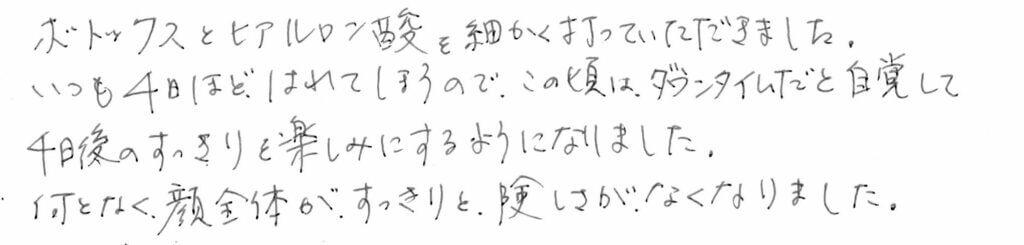 ボトックスとヒアルロン酸を細かく打っていただきました。
いつも4日ほど、はれてしまうので、この頃は、ダウンタイムだと自覚して
4日後のすっきりを楽しみにするようになりました。
何となく、顔全体が、すっきりと、険しさが、なくなりました。